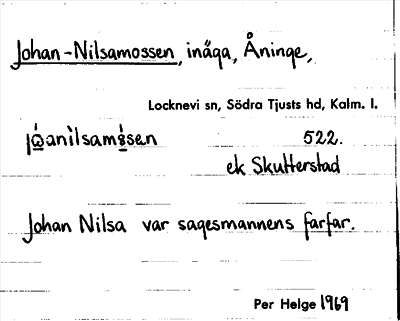 Johan-Nilsamossen, inäga, Åninge,
Locknevi sn, Södra Tjusts hd, Kalm. l.
522.
ek Skutterstad
Johan Nilsa var sagesmannens farfar.
Per Helge 1969